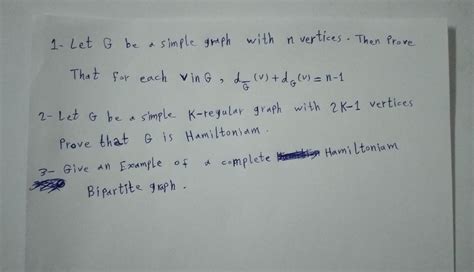 1- Let G be a simple graph with n vertices. Then Prove
That for each v in G, d_G̅(v)+d_G(v)=n-1
2- Let G be a simple K-regular graph with 2K-1 vertices
Prove that G is Hamiltoniam.
3- Give an Example of a complete Hamiltoniam
Bipartite graph.